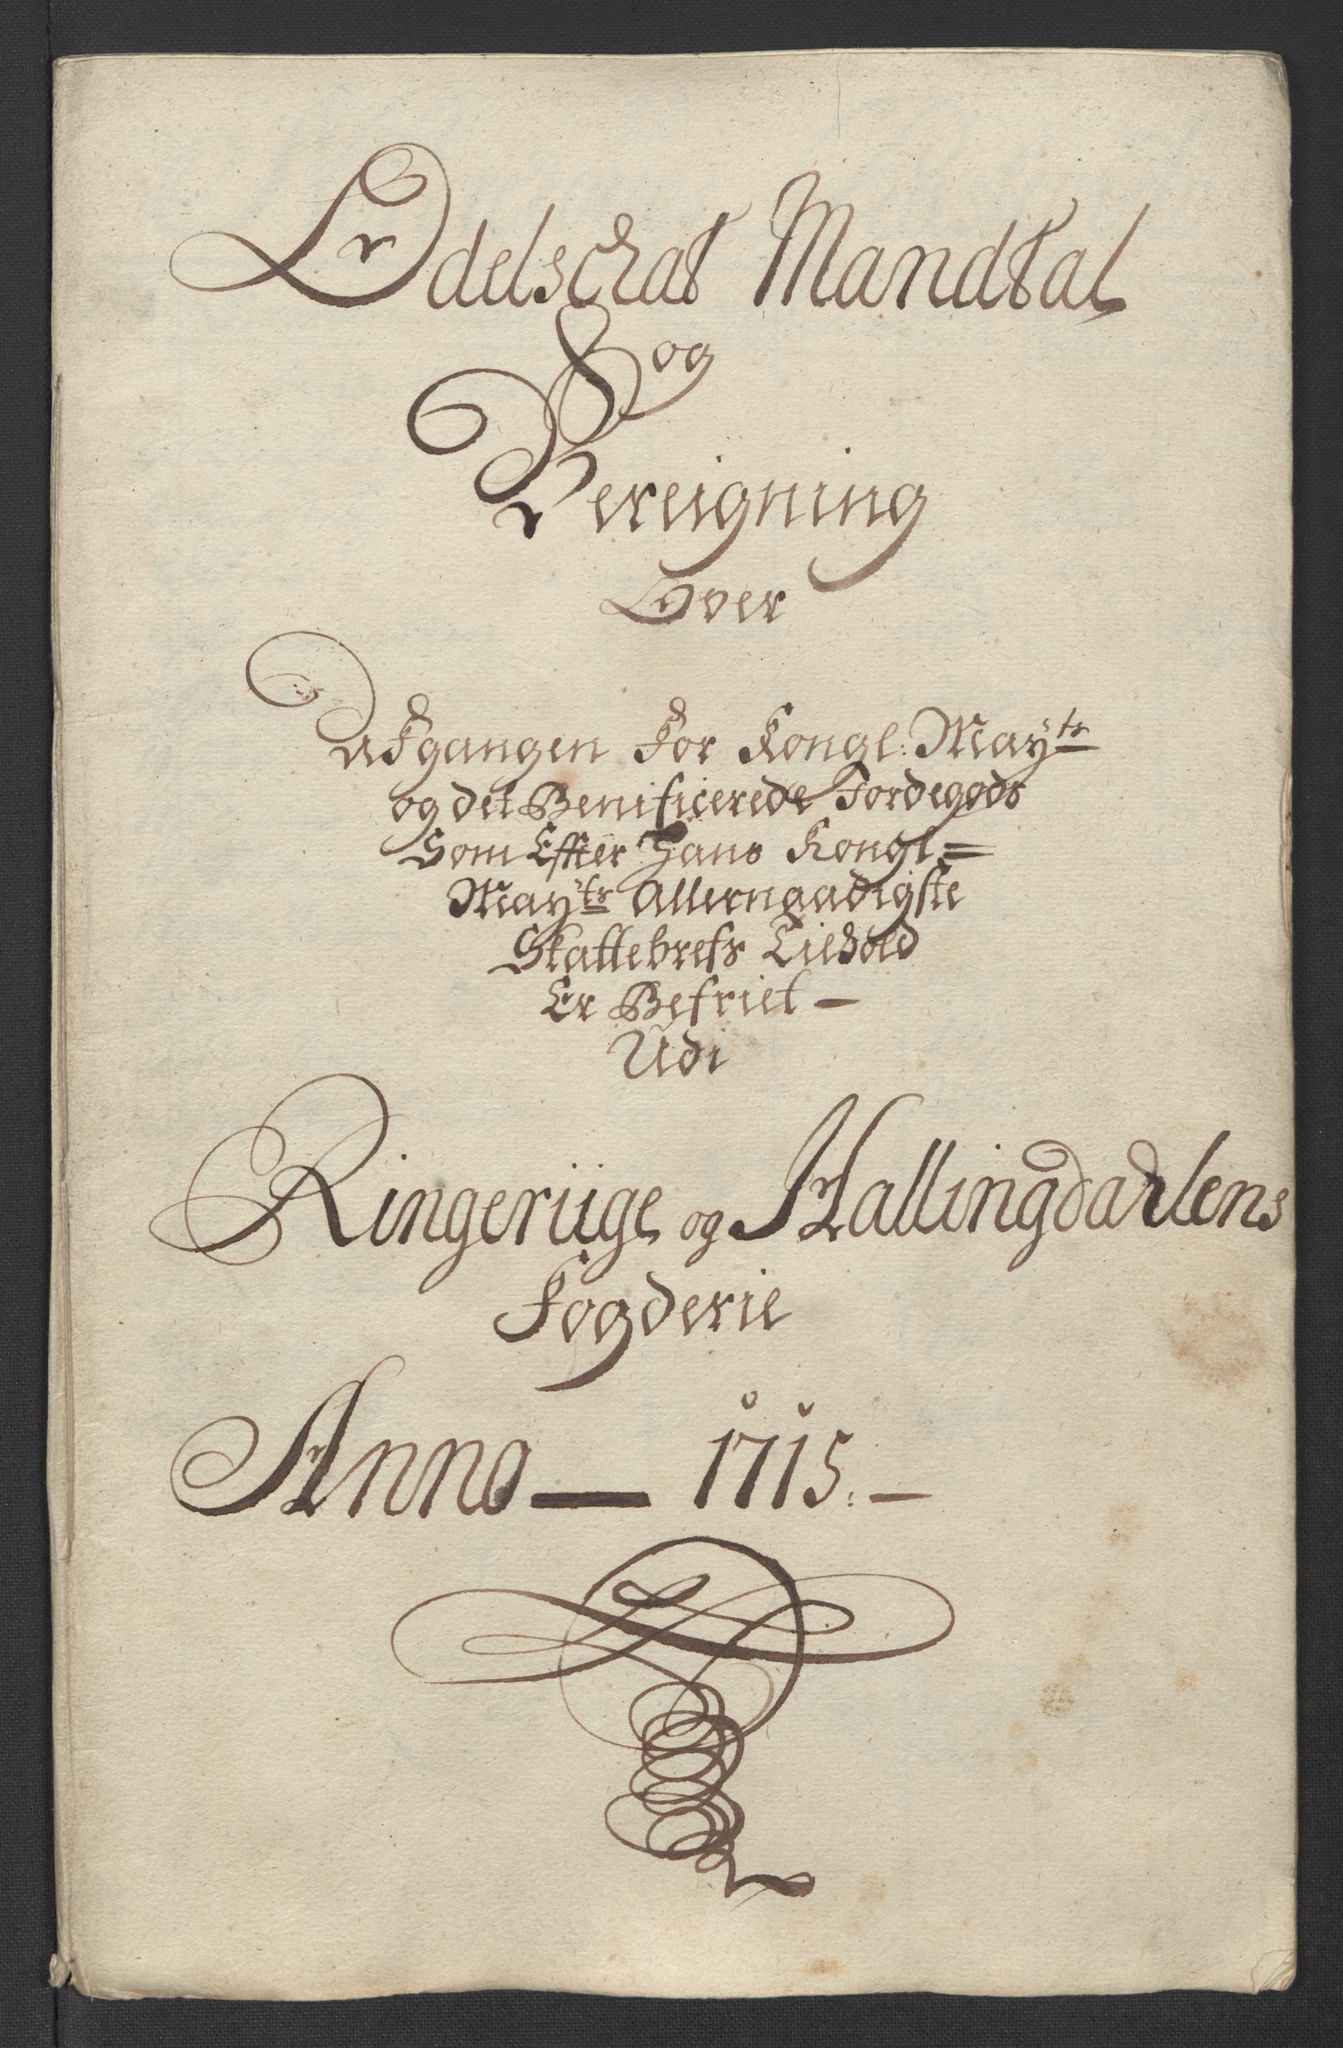 Odelschat Mandtal
og
Bereigning
Over
Afgangen For Kongl: Mayts
og det Benificerede Jordegods
Som Effter Hans Kongl=
Mayts Allernaadigste
Skattebrefs Eiehold
Er Befriet —
Udi
Ringeriige og Hallingdarlens
Fogderie
Anno — 1715. —